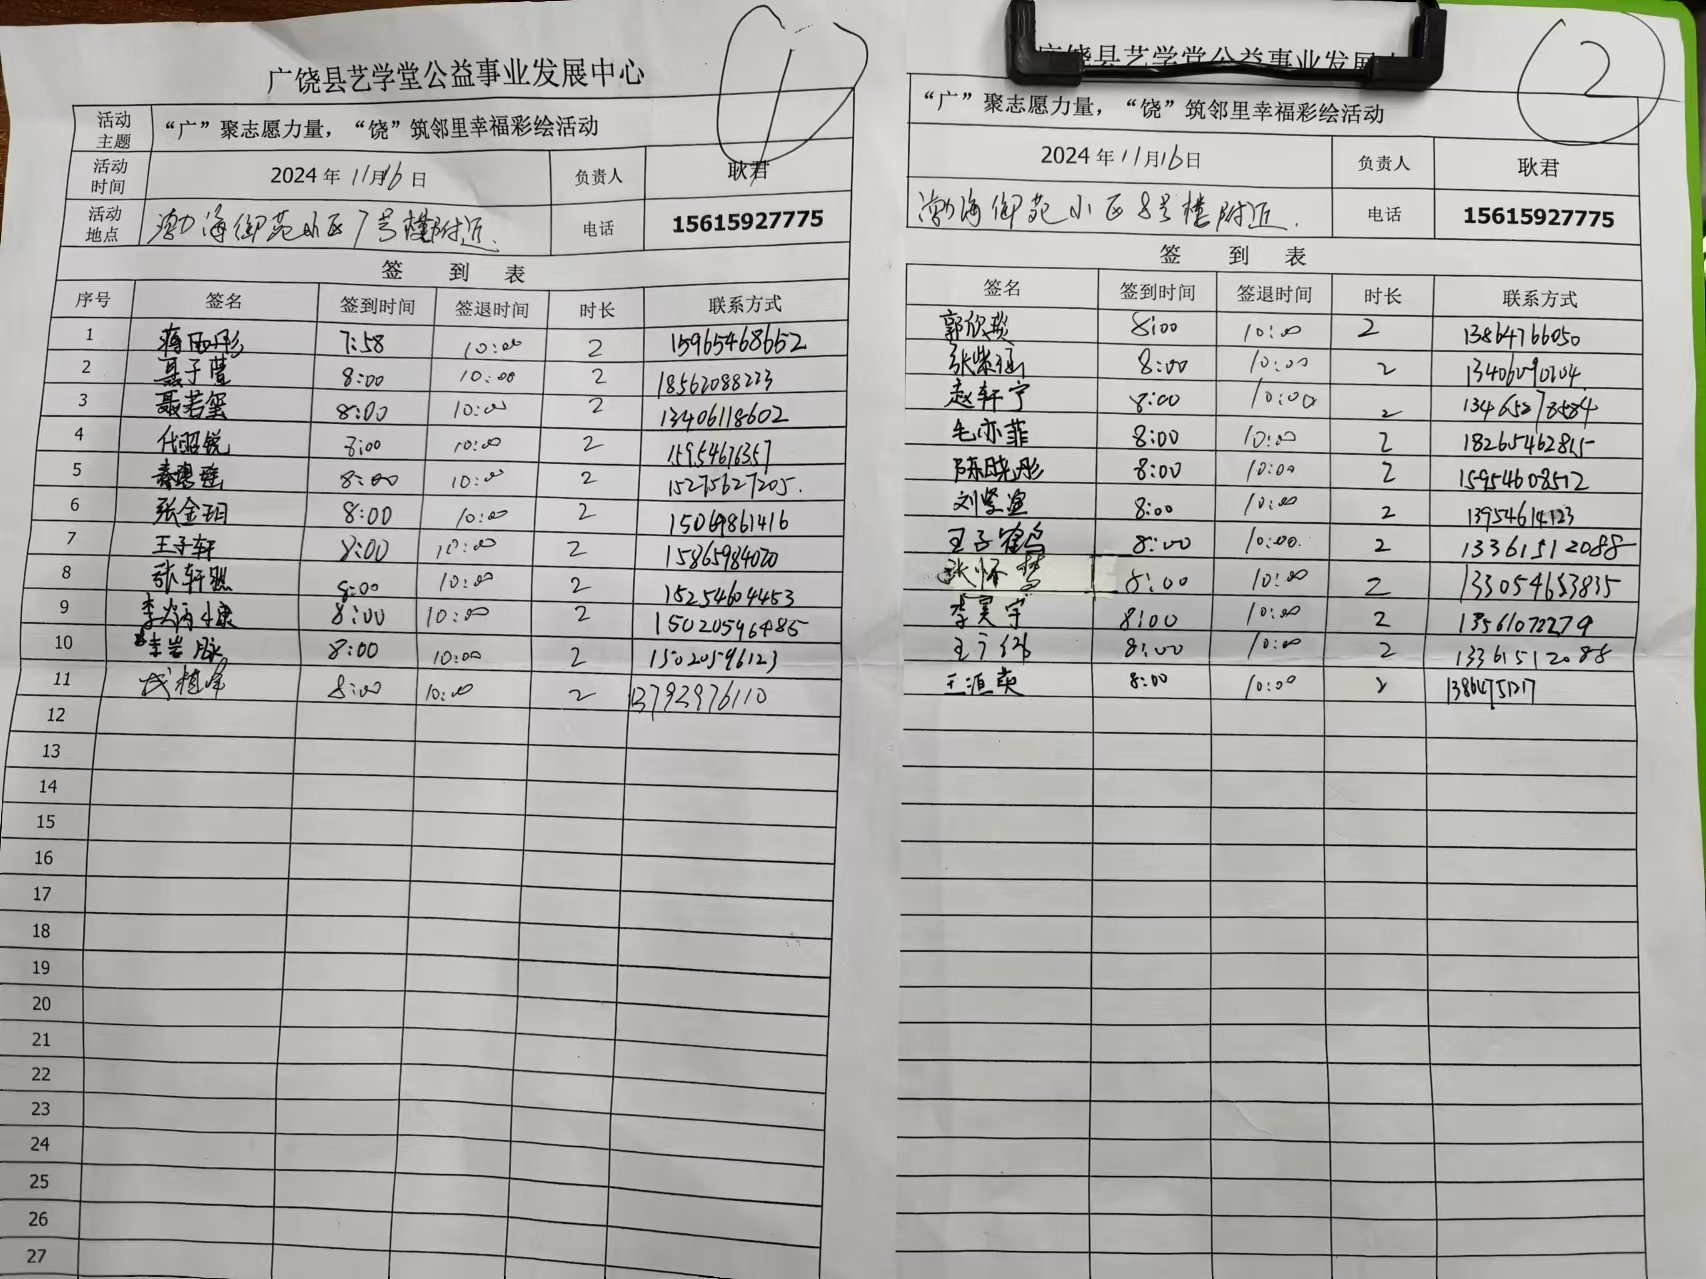 1
广饶县艺学堂公益事业发展中心
活动主题 “广”聚志愿力量，“饶”筑邻里幸福彩绘活动
活动时间 2024年11月16日 负责人 耿君
活动地点 渤海御苑小区7号楼附近. 电话 15615927775
签 到 表
序号 签名 签到时间 签退时间 时长 联系方式
1 蒋雨彤 7:58 10:00 2 15965468652
2 聂子萱 8:00 10:00 2 18562088223
3 聂若玺 8:00 10:00 2 13406118602
4 代昭锐 8:00 10:00 2 15954676357
5 8:00 10:00 2 15275627205.
6 张金玥 8:00 10:00 2 15069861416
7 王子轩 8:00 10:00 2 15865984020
8 张轩 8:00 10:00 2 15254604453
9 8:00 10:00 2 15020596485
10 8:00 10:00 2 15020596123
11 8:00 10:00 2 13793976110
12
13
14
15
16
17
18
19
20
21
22
23
24
25
26
27
2
广饶县艺学堂公益事业发展
“广”聚志愿力量，“饶”筑邻里幸福彩绘活动
2024年11月16日 负责人 耿君
渤海御苑小区8号楼附近. 电话 15615927775
签 到 表
签名 签到时间 签退时间 时长 联系方式
郭欣 8:00 10:00 2 13864766050
张紫涵 8:00 10:00 2 13406090204
赵轩宁 8:00 10:00 2 13465278584
毛亦菲 8:00 10:00 2 18265462815
陈晓彤 8:00 10:00 2 15954608512
刘 8:00 10:00 2 13954614123
王子鹤 8:00 10:00 2 13361512088
张怀 8:00 10:00 2 133054653835
李昊宇 8:00 10:00 2 13561072279
王子 8:00 10:00 2 13361512088
王 8:00 10:00 2 13864751217